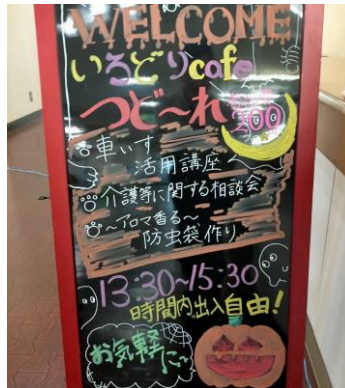 WELCOME
いろどりcafe
つど～れ
200
車いす
活用講座
介護等に関する相談会
～アロマ香る～
防虫袋作り
13:30~15:30
時間内出入自由！
お気軽に～